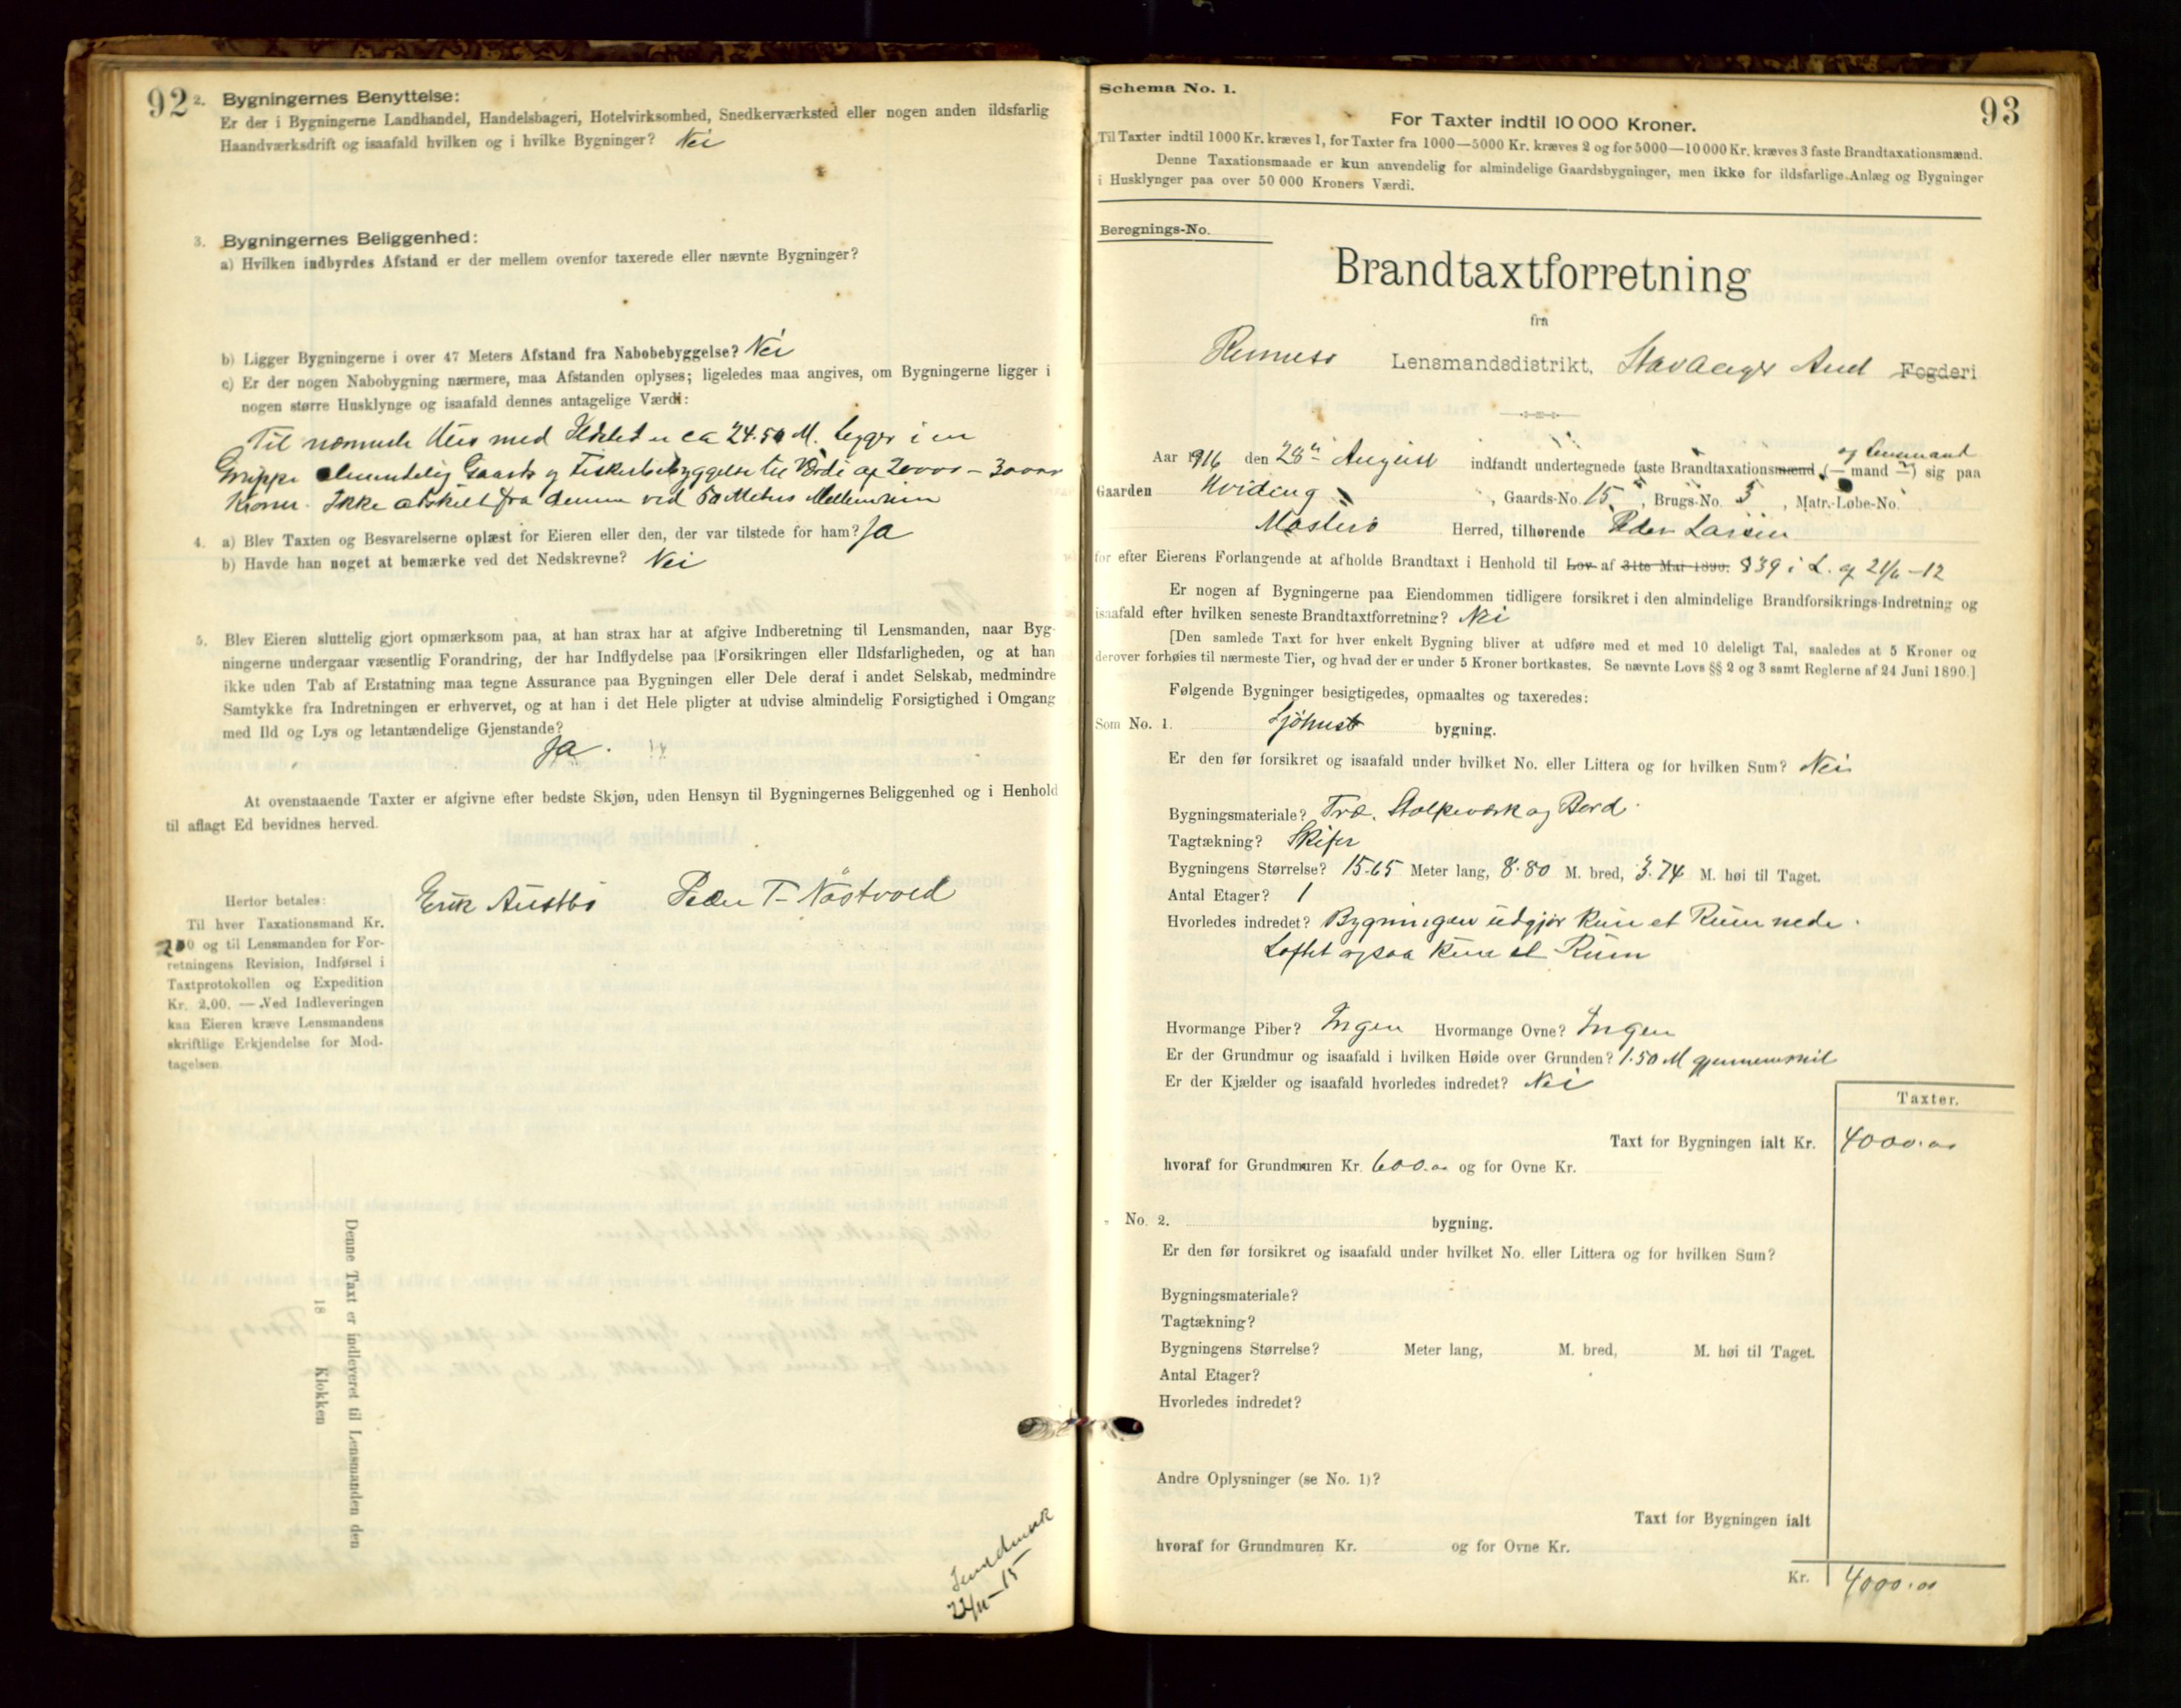 92
2. Bygningernes Benyttelse:
Er der i Bygningerne Landhandel, Handelsbageri, Hotelvirksomhed, Snedkerværksted eller nogen anden ildsfarlig
Haandværksdrift og isaafald hvilken og i hvilke Bygninger? Nei
3. Bygningernes Beliggenhed:
a) Hvilken indbyrdes Afstand er der mellem ovenfor taxerede eller nævnte Bygninger?
b) Ligger Bygningerne i over 47 Meters Afstand fra Nabobebyggelse? Nei
c) Er der nogen Nabobygning nærmere, maa Afstanden oplyses; ligeledes maa angives, om Bygningerne ligger i
nogen større Husklynge og isaafald dennes antagelige Værdi:
Til nærmeste Hus med Ildsted er ca 24.50 M. Ligger i en
Gruppe almindelig Gaards og Fiskerbebyggelse til Værdi af 20000 – 30000
Kroner. Ikke adskilt fra denne ved 50 Meters Mellemrum
4. a) Blev Taxten og Besvarelserne oplæst for Eieren eller den, der var tilstede for ham? Ja
b) Havde han noget at bemærke ved det Nedskrevne? Nei
5. Blev Eieren sluttelig gjort opmærksom paa, at han strax har at afgive Indberetning til Lensmanden, naar Byg-
ningerne undergaar væsentlig Forandring, der har Indflydelse paa Forsikringen eller Ildsfarligheden, og at han
ikke uden Tab af Erstatning maa tegne Assurance paa Bygningen eller Dele deraf i andet Selskab, medmindre
Samtykke fra Indretningen er erhvervet, og at han i det Hele pligter at udvise almindelig Forsigtighed i Omgang
med Ild og Lys og letantændelige Gjenstande?
Ja.
At ovenstaaende Taxter er afgivne efter bedste Skjøn, uden Hensyn til Bygningernes Beliggenhed og i Henhold
til aflagt Ed bevidnes herved.
Erik Austbø Peder T. Nåstvold
Herfor betales:
Til hver Taxationsmand Kr.
2 00 og til Lensmanden for For-
retningens Revision, Indførsel i
Taxtprotokollen og Expedition
Kr. 2.00. — Ved Indleveringen
kan Eieren kræve Lensmandens
skriftlige Erkjendelse for Mod-
tagelsen.
Denne Taxt er indleveret til Lensmanden den
18 Klokken
22/11–15
93
Schema No. 1.
For Taxter indtil 10 000 Kroner.
Til Taxter indtil 1000 Kr. kræves 1, for Taxter fra 1000—5000 Kr. kræves 2 og for 5000—10 000 Kr. kræves 3 faste Brandtaxationsmænd.
Denne Taxationsmaade er kun anvendelig for almindelige Gaardsbygninger, men ikke for ildsfarlige Anlæg og Bygninger
i Husklynger paa over 50 000 Kroners Værdi.
Beregnings-No.
Brandtaxtforretning
fra
Rennesø Lensmandsdistrikt, Stavanger Amt Fogderi
og Lensmand
Aar 1916 den 28de August indfandt undertegnede faste Brandtaxationsmænd (—mand —) sig paa
Gaarden Hviding, Gaards-No. 15, Brugs-No. 3, Matr.-Løbe-No.
Mosterø Herred, tilhørende Peder Larsen
for efter Eierens Forlangende at afholde Brandtaxt i Henhold til Lov af 31te Mai 1890. § 39 i L. af 21/6–12
Er nogen af Bygningerne paa Eiendommen tidligere forsikret i den almindelige Brandforsikrings-Indretning og
isaafald efter hvilken seneste Brandtaxtforretning? Nei
[Den samlede Taxt for hver enkelt Bygning bliver at udføre med et med 10 deleligt Tal, saaledes at 5 Kroner og
derover forhøies til nærmeste Tier, og hvad der er under 5 Kroner bortkastes. Se nævnte Lovs §§ 2 og 3 samt Reglerne af 24 Juni 1890.]
Følgende Bygninger besigtigedes, opmaaltes og taxeredes:
Som No. 1. Sjøhus bygning.
Er den før forsikret og isaafald under hvilket No. eller Littera og for hvilken Sum? Nei
Bygningsmateriale? Træ, Stolpeværk og Bord.
Tagtækning? Skifer
Bygningens Størrelse? 15.65 Meter lang, 8.80 M. bred, 3.74 M. høi til Taget.
Antal Etager? 1
Hvorledes indredet? Bygningen udgjør kun et Rum nede.
Loftet ogsaa kun et Rum
Hvormange Piber? Ingen Hvormange Ovne? Ingen
Er der Grundmur og isaafald i hvilken Høide over Grunden? 1.50 M gjennemsnit
Er der Kjælder og isaafald hvorledes indredet? Nei
Taxter.
Taxt for Bygningen ialt Kr. 4000.00
hvoraf for Grundmuren Kr. 600.00 og for Ovne Kr.
" No. 2. bygning.
Er den før forsikret og isaafald under hvilket No. eller Littera og for hvilken Sum?
Bygningsmateriale?
Tagtækning?
Bygningens Størrelse? Meter lang, M. bred, M. høi til Taget.
Antal Etager?
Hvorledes indredet?
Andre Oplysninger (se No. 1)?
Taxt for Bygningen ialt
hvoraf for Grundmuren Kr. og for Ovne Kr.
Kr. 4000.00